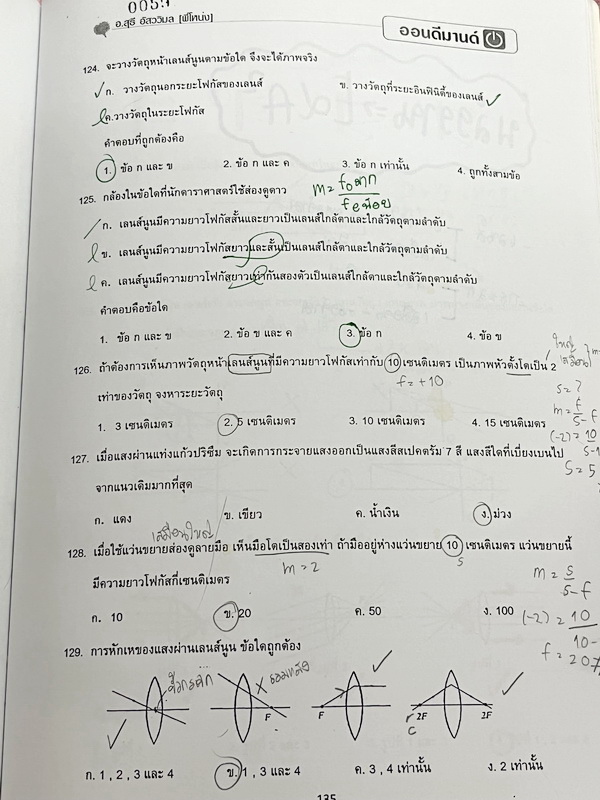 0059
อ.สุธี อัสววิมล [พี่โหน่ง]
ออนดีมานด์
124. จะวางวัตถุหน้าเลนส์นูนตามข้อใด จึงจะได้ภาพจริง
ก. วางวัตถุนอกระยะโฟกัสของเลนส์ ข. วางวัตถุที่ระยะอินฟินิตี้ของเลนส์
ค.วางวัตถุในระยะโฟกัส
คำตอบที่ถูกต้องคือ
1. ข้อ ก และ ข 2. ข้อ ก และ ค 3. ข้อ ก เท่านั้น 4. ถูกทั้งสามข้อ
125. กล้องในข้อใดที่นักดาราศาสตร์ใช้ส่องดูดาว
m = fo มาก
fe น้อย
ก. เลนส์นูนมีความยาวโฟกัสสั้นและยาวเป็นเลนส์ใกล้ตาและใกล้วัตถุตามลำดับ
ข. เลนส์นูนมีความยาวโฟกัสยาวและสั้นเป็นเลนส์ใกล้ตาและใกล้วัตถุตามลำดับ
ค. เลนส์นูนมีความยาวโฟกัสยาวเท่ากันสองตัวเป็นเลนส์ใกล้ตาและใกล้วัตถุตามลำดับ
คำตอบคือข้อใด
1. ข้อ ก และ ข 2. ข้อ ข และ ค 3. ข้อ ก 4. ข้อ ข
126. ถ้าต้องการเห็นภาพวัตถุหน้าเลนส์นูนที่มีความยาวโฟกัสเท่ากับ 10 เซนติเมตร เป็นภาพหัวตั้งโตเป็น 2
ใหญ่
เสมือน
f = +10
เท่าของวัตถุ จงหาระยะวัตถุ
s = ?
1. 3 เซนติเมตร 2. 5 เซนติเมตร 3. 10 เซนติเมตร 4. 15 เซนติเมตร
m = f
s-f
(-2) = 10
s = 5
127. เมื่อแสงผ่านแท่งแก้วปริซึม จะเกิดการกระจายแสงออกเป็นแสงสีสเปคตรัม 7 สี แสงสีใดที่เบี่ยงเบนไป
จากแนวเดิมมากที่สุด
ก. แดง ข. เขียว ค. น้ำเงิน ง. ม่วง
เสมือนใหญ่
128. เมื่อใช้แว่นขยายส่องดูลายมือ เห็นมือโตเป็นสองเท่า ถ้ามืออยู่ห่างแว่นขยาย 10 เซนติเมตร แว่นขยายนี้
m = 2
s
มีความยาวโฟกัสกี่เซนติเมตร
ก. 10 ข. 20 ค. 50 ง. 100
m = s
s-f
(-2) = 10
10-
f = 20
129. การหักเหของแสงผ่านเลนส์นูน ข้อใดถูกต้อง
F F 2F 2F
C
ก. 1 , 2 , 3 และ 4 ข. 1 , 3 และ 4 ค. 3 , 4 เท่านั้น ง. 2 เท่านั้น
135